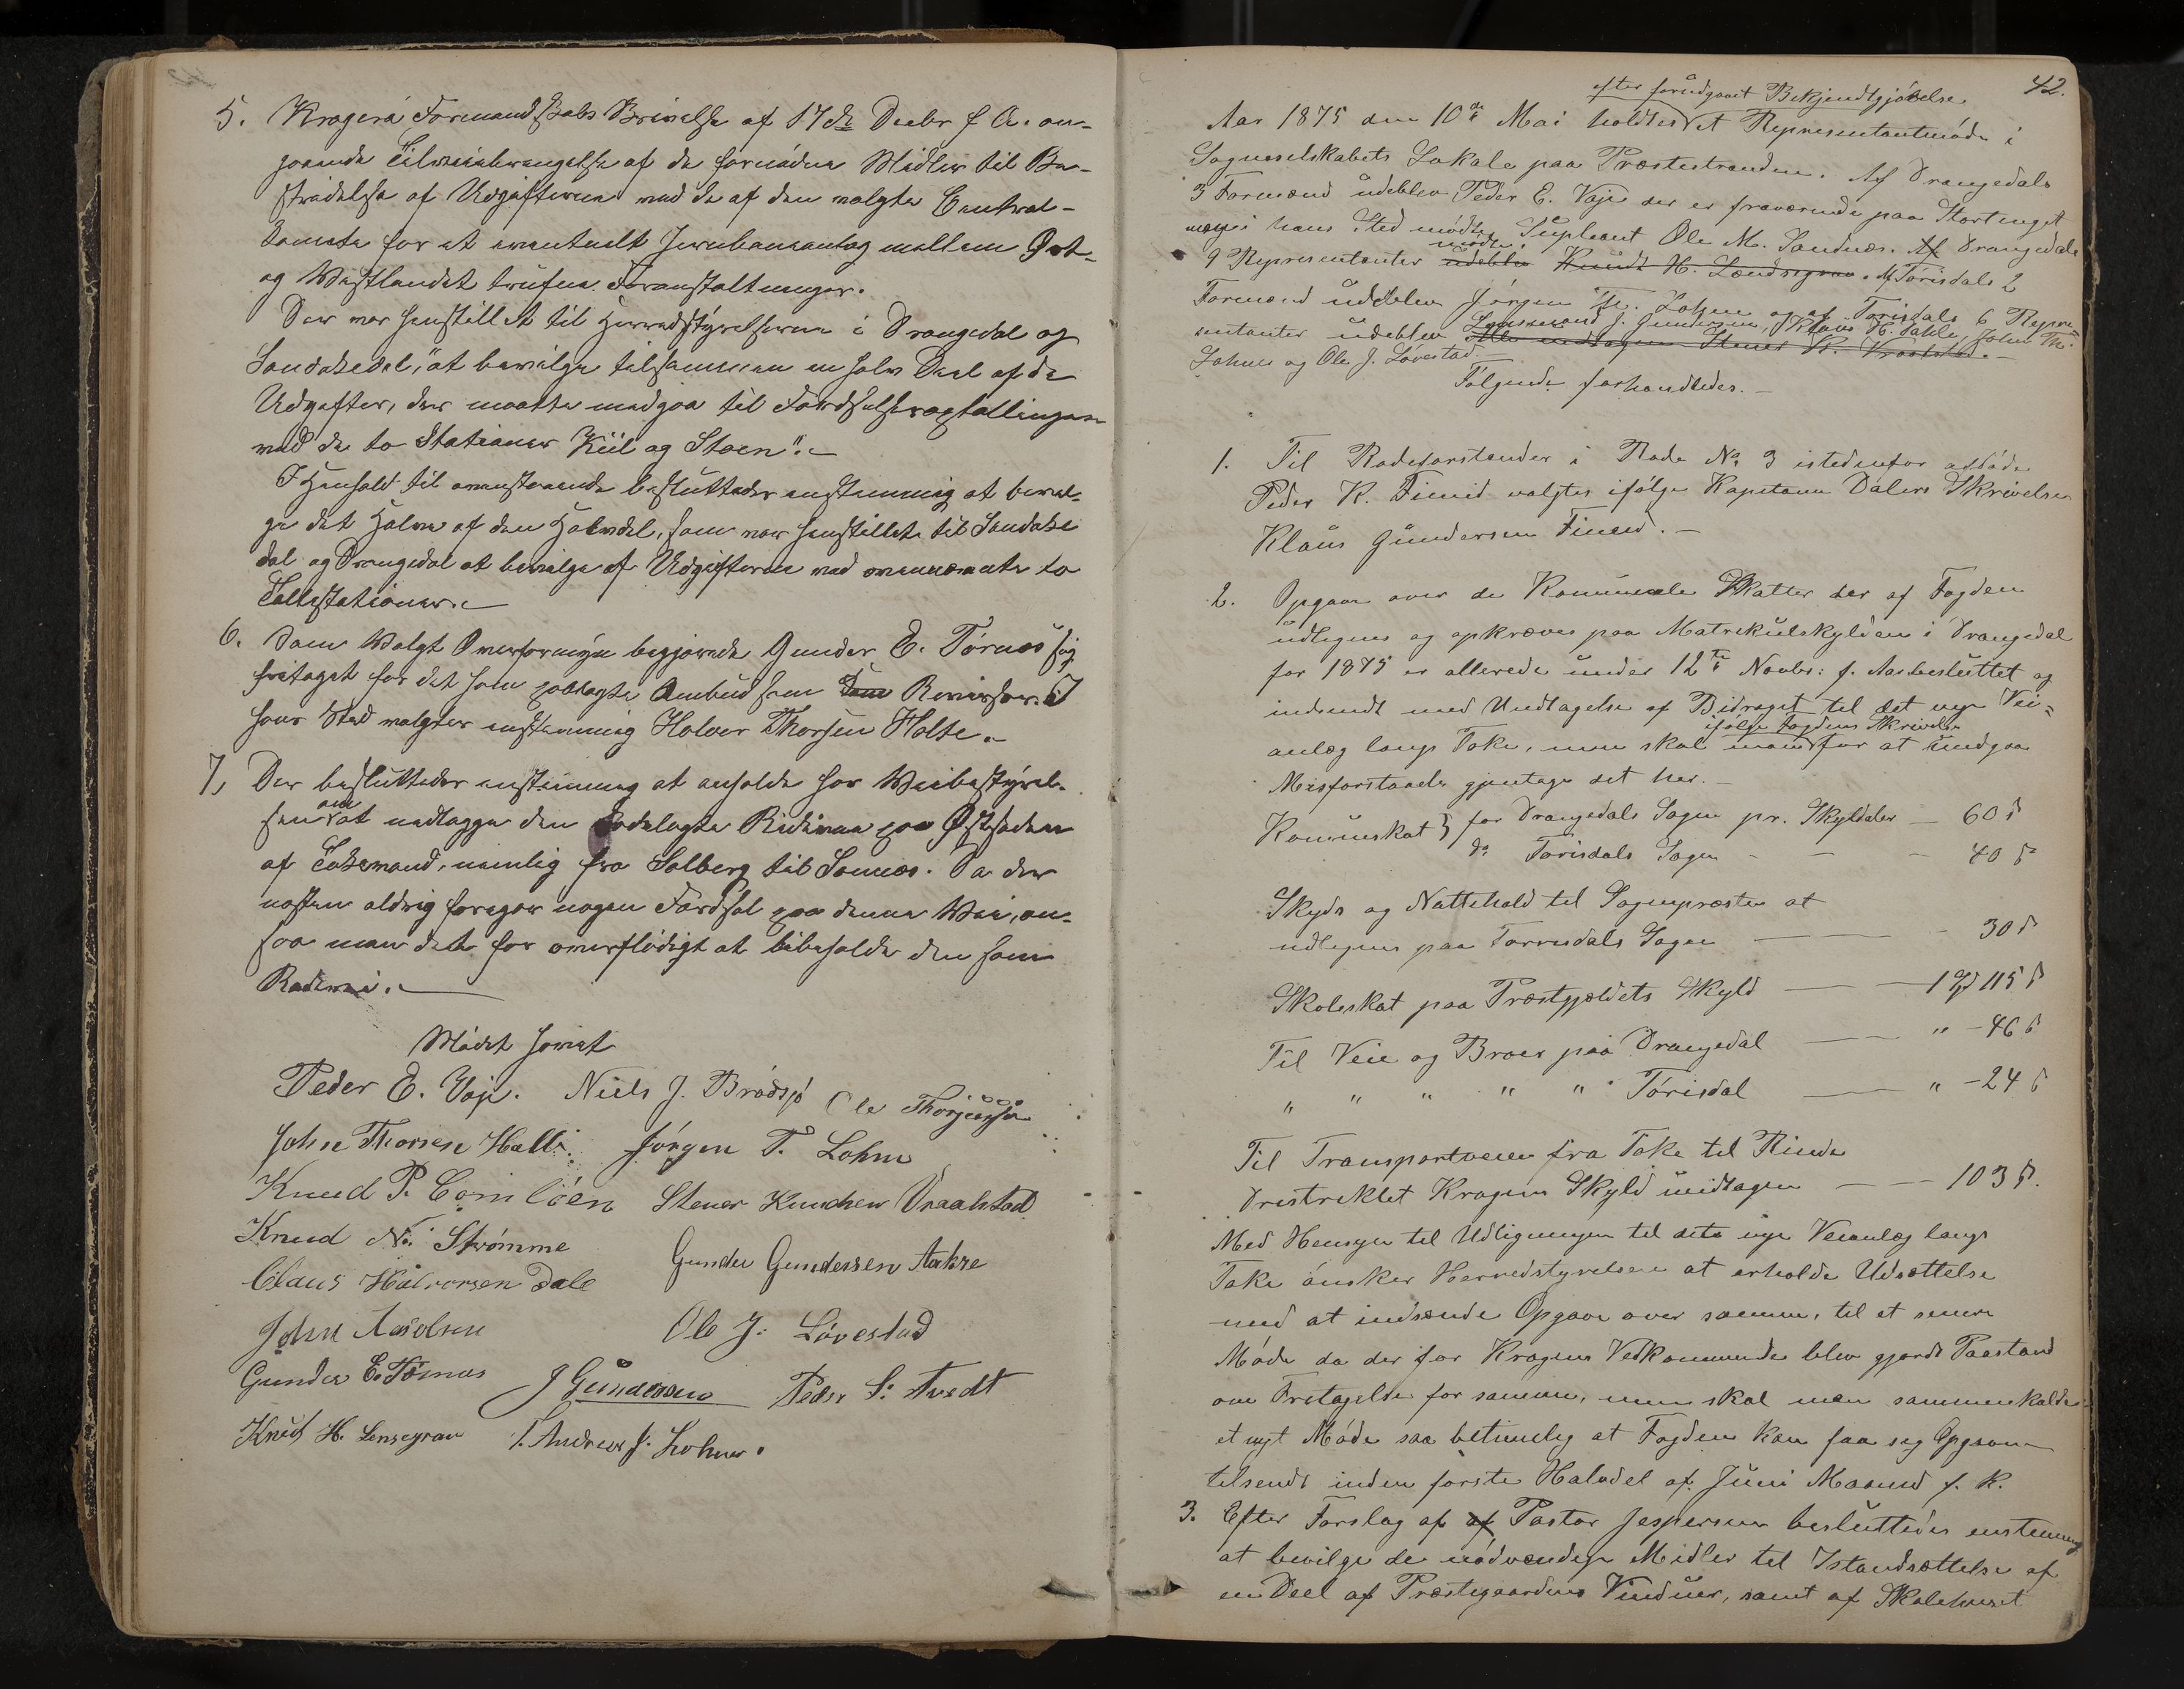 5. Kragerø Formandskabs Skrivelse af 17de Decbr f. A. an-
gaaende Tilveiebringelse af de fornødne Midler til Be-
stridelse af Udgifterne med de af den valgte Central-
Komite for et eventuelt Jernbaneanlæg mellem Øst-
og Vestlandet trufne Foranstaltninger.
Der var henstillet til Herredstyrelserne i Drangedal og
Sandøkedal, "at bevilge tilsammen en halv Deel af de
Udgifter, der maatte medgaa til Færdselsoptællingen
ved de to Stationer Kiil og Stoen".—
I Henhold til ovenstaaende besluttedes enstemmig at bevil-
ge det Halve af den Halvdel, som var henstillet til Sandøke
dal og Drangedal at bevilge af Udgifterne ved ovennævnte to
Tællestationer.—
6. Som valgt Overformyn begjærede Gunder E. Tørnæs sig
fritaget for det ham paalagte Ombud som Revisor. I
hans Sted valgtes enstemmig Halvor Thorsen Holte.—
7, Der besluttedes enstemmig at anholde hos Veibestyrel-
sen om at nedlægge den Rodelagte Rideveie paa Østsiden
af Tokevand, nemlig fra Solberg til Sannes. Da der
næsten aldrig foregaar nogen Færdsel paa denne Vei, an-
saa man det for overflødigt at bibeholde den som
Rodevei.—
Mødet hævet
Peder E. Vaje. Niels J. Brødsjø Ole Thorjussen
John Thorsen Halli. Jørgen T. Lohne
Knud P. Stener Knudsen Vraalstad
Knud N. Strømme
Gunder Gundersen Aakre
Claus Halvorsen Dale
John Ole J. Løvestad
Gunder E. Tørnæs J Gundersen Peder S. Tvedt
Knud H. Lensegrav T. Andreas J. Lohne.
42.
efter forudgaaet Bekjendtgjørelse
Aar 1875 den 10de Mai holdtes et Repræsentantmøde i
Sogneselskabets Lokale paa Præstestranden. Af Drangedals
3 Formænd udeblev Peder E. Vaje der er fraværende paa Stortinget
men i hans Sted mødte Supleant Ole M. Sandnæs. Af Drangedals
mødte.
9 Repræsentanter udeblev Knudt H. Lændsegrav. Af Tørisdals 2
Formænd udeblev Jørgen Th. Lohne og af Tørisdals 6 Repræ-
sentanter udeblev J. Gundersen, Klaus H. Dahle, John Th.
Alle undtagen Stener K. Vraalstad.—
Lohne og Ole J. Løvestad.—
Følgende forhandledes.—
1. Til Rodeforstander i Rode No 3 istedenfor afdøde
Peder K. Fiene valgtes ifølge Kapitain Dalers Skrivelse
Klaus Gundersen Fiene.—
2. Opgave over de Kommunale Skatter der af Fogden
udlignes og opkræves paa Matrikulskylden i Drangedal
for 1875 er allerede under 12te Novbr: f. Aar besluttet og
indsendt med Undtagelse af Bidraget til det nye Vei-
ifølge Fogdens Skrivelse
anlæg langs Toke, men skal man for at undgaa
Misforstaaelse gjentage det her.—
Kommuneskat for Drangedals Sogn pr. Skylddaler — 60 ß
do Tørisdals Sogn - — - 40 ß
Skyds og Nattehold til Sognepræsten at
udlignes paa Tørrisdals Sogn —— - 30 ß
Skoleskat paa Præstegjældets Skyld —— 1 Spd 115 ß
Til Veie og Broer paa Drangedal —— " - 46 ß
" " " " " Tørisdal —— " - 24 ß
Til Transportveien fra Toke til Rinde
Drestriktet Kragerø Skyld undtagen —— 103 ß.
Med Hensyn til Udligningen til dets nye Veianlæg langs
Toke ønsker Herredstyrelsen at erholde Udsættelse
med at indsende Opgave over samme, til et senere
Møde da der for Kragerøs Vedkommende blev gjordt Paastand
om Fritagelse for samme, men skal man sammenkalde
et nyt Møde saa betimelig at Fogden kan faa sig Opgaven
tilsendt inden første Halvdel af Juni Maaned f. K.
3. Efter Forslag af af Pastor Jespersen besluttedes enstemmig
at bevilge de nødvendige Midler til Istandsættelse af
en Deel af Præstegaardens Vinduer, samt af Skolehuset